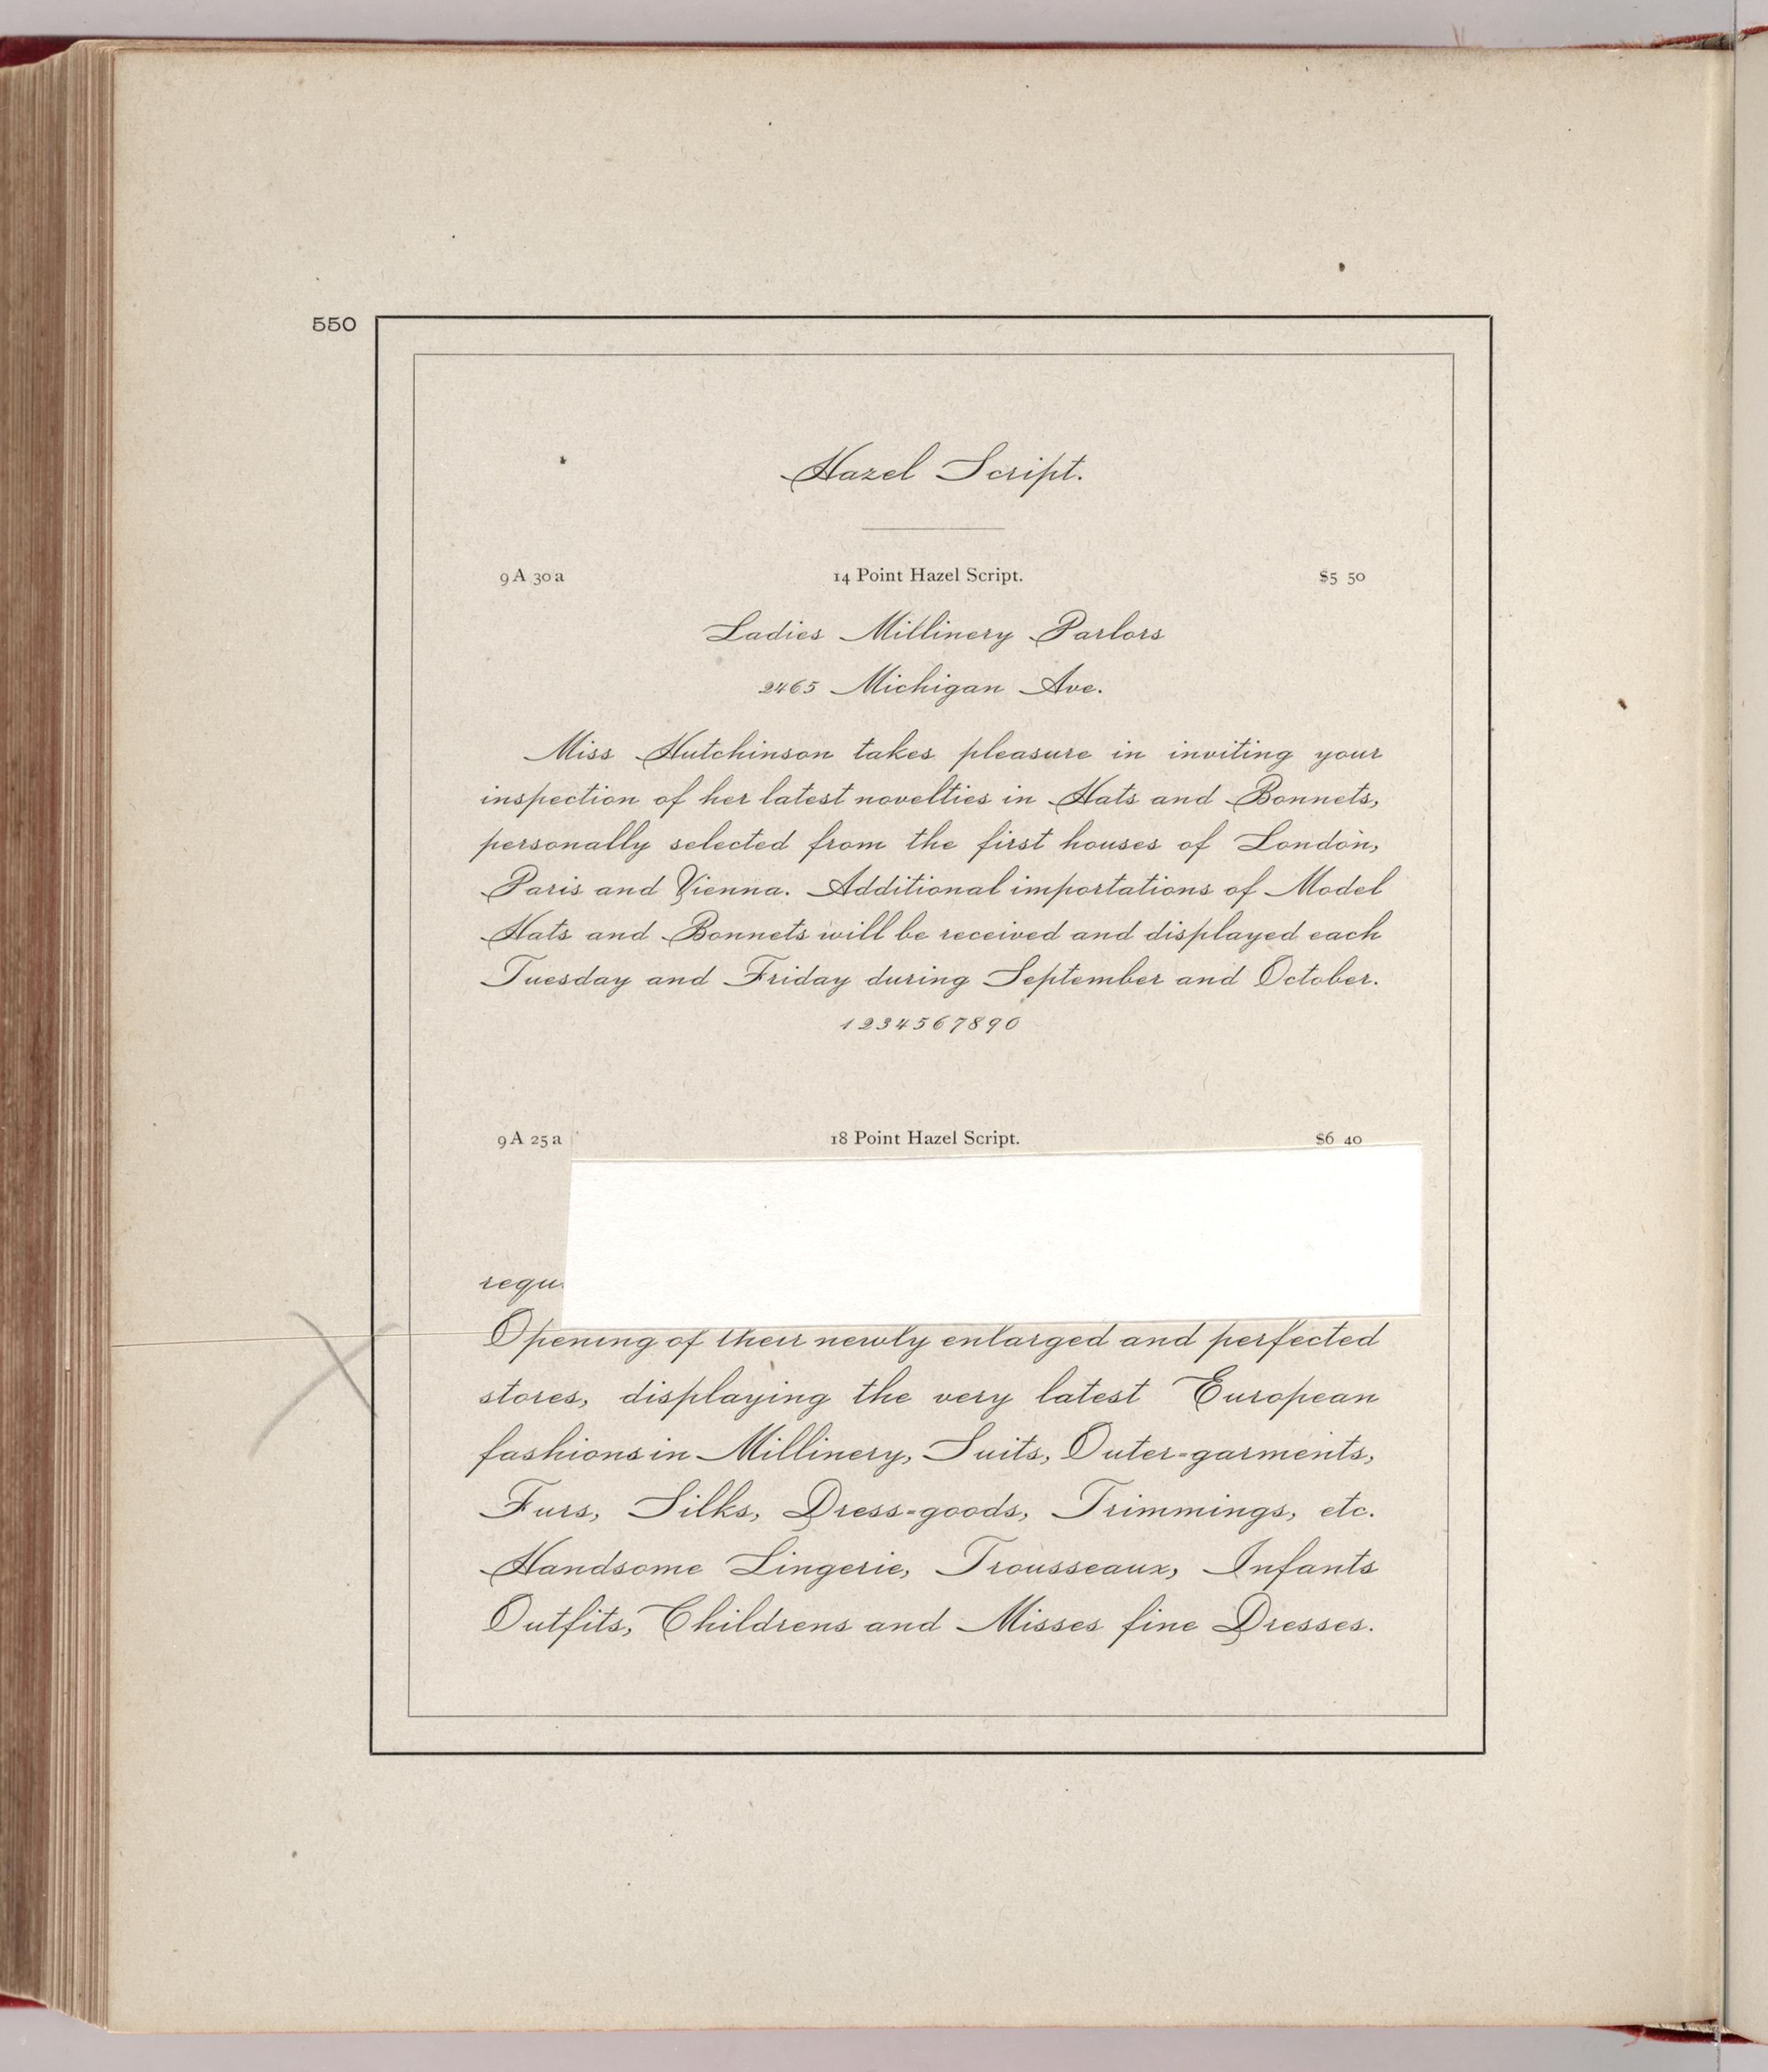 550
Hazel Script.
9 A 30 a 14 Point Hazel Script. $5 50
Ladies Millinery Parlors
2465 Michigan Ave.
Miss Hutchinson takes pleasure in inviting your
inspection of her latest novelties in Hats and Bonnets,
personally selected from the first houses of London,
Paris and Vienna. Additional importations of Model
Hats and Bonnets will be received and displayed each
Tuesday and Friday during September and October.
1234567890
9 A 25 a 18 Point Hazel Script. $6 40
Opening of their newly enlarged and perfected
stores, displaying the very latest European
fashions in Millinery, Suits, Outer-garments,
Furs, Silks, Dress-goods, Trimmings, etc.
Handsome Lingerie, Trousseaux, Infants
Outfits, Childrens and Misses fine Dresses.